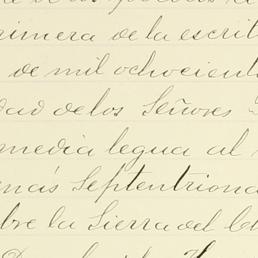 primera de la escrit
de mil ochocient
dad de los Señores
media legua al
más Septentriona
bre la Sierra del